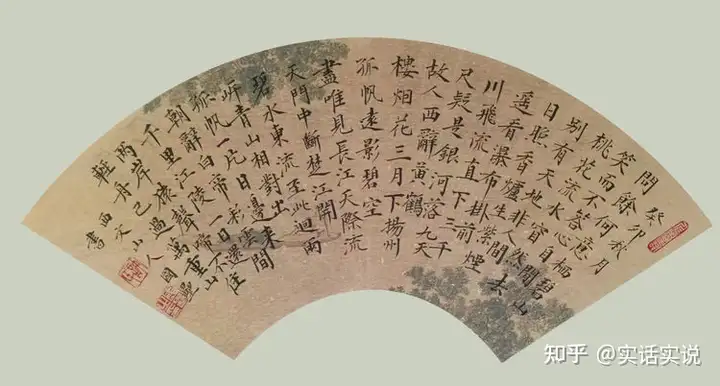 癸卯秋月
問餘何意栖碧山
笑而不答心自閒
桃花流水窅然去
別有天地非人間
日照香爐生紫煙
遥看瀑布掛前
川飛流直下三千
尺疑是銀河落九天
故人西辭黄鶴
樓烟花三月下揚州
孤帆遠影碧空
盡唯見長江天際流
天門中斷楚江開
碧水東流至此迴兩
岸青山相對出
孤帆一片日邊來
朝辭白帝彩雲間
千里江陵一日還
兩岸猿聲啼不住
輕舟已過萬重山
西文山人國
書
知乎 @实话实说